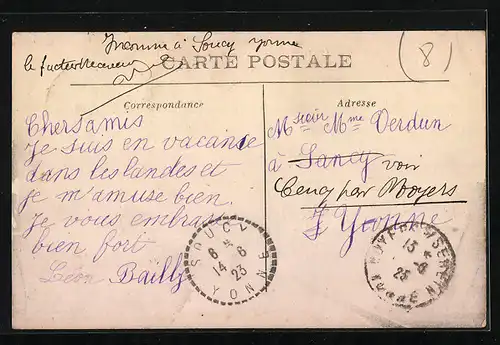 Inconnu à Soucy Yonne
le facteur receveur
(8)
CARTE POSTALE
Correspondance
Adresse
Chers amis
Je suis en vacance
dans les landes et
je m'amuse bien.
Je vous embrasse
bien fort
Léon Bailly
Msieur Mme Verdun
à Sancy voir
Cency par Noyers
Yonne
SOUCY
8
14 - 8
23
YONNE
NOYERS-S-SEREIN
15 - 8
23
YONNE